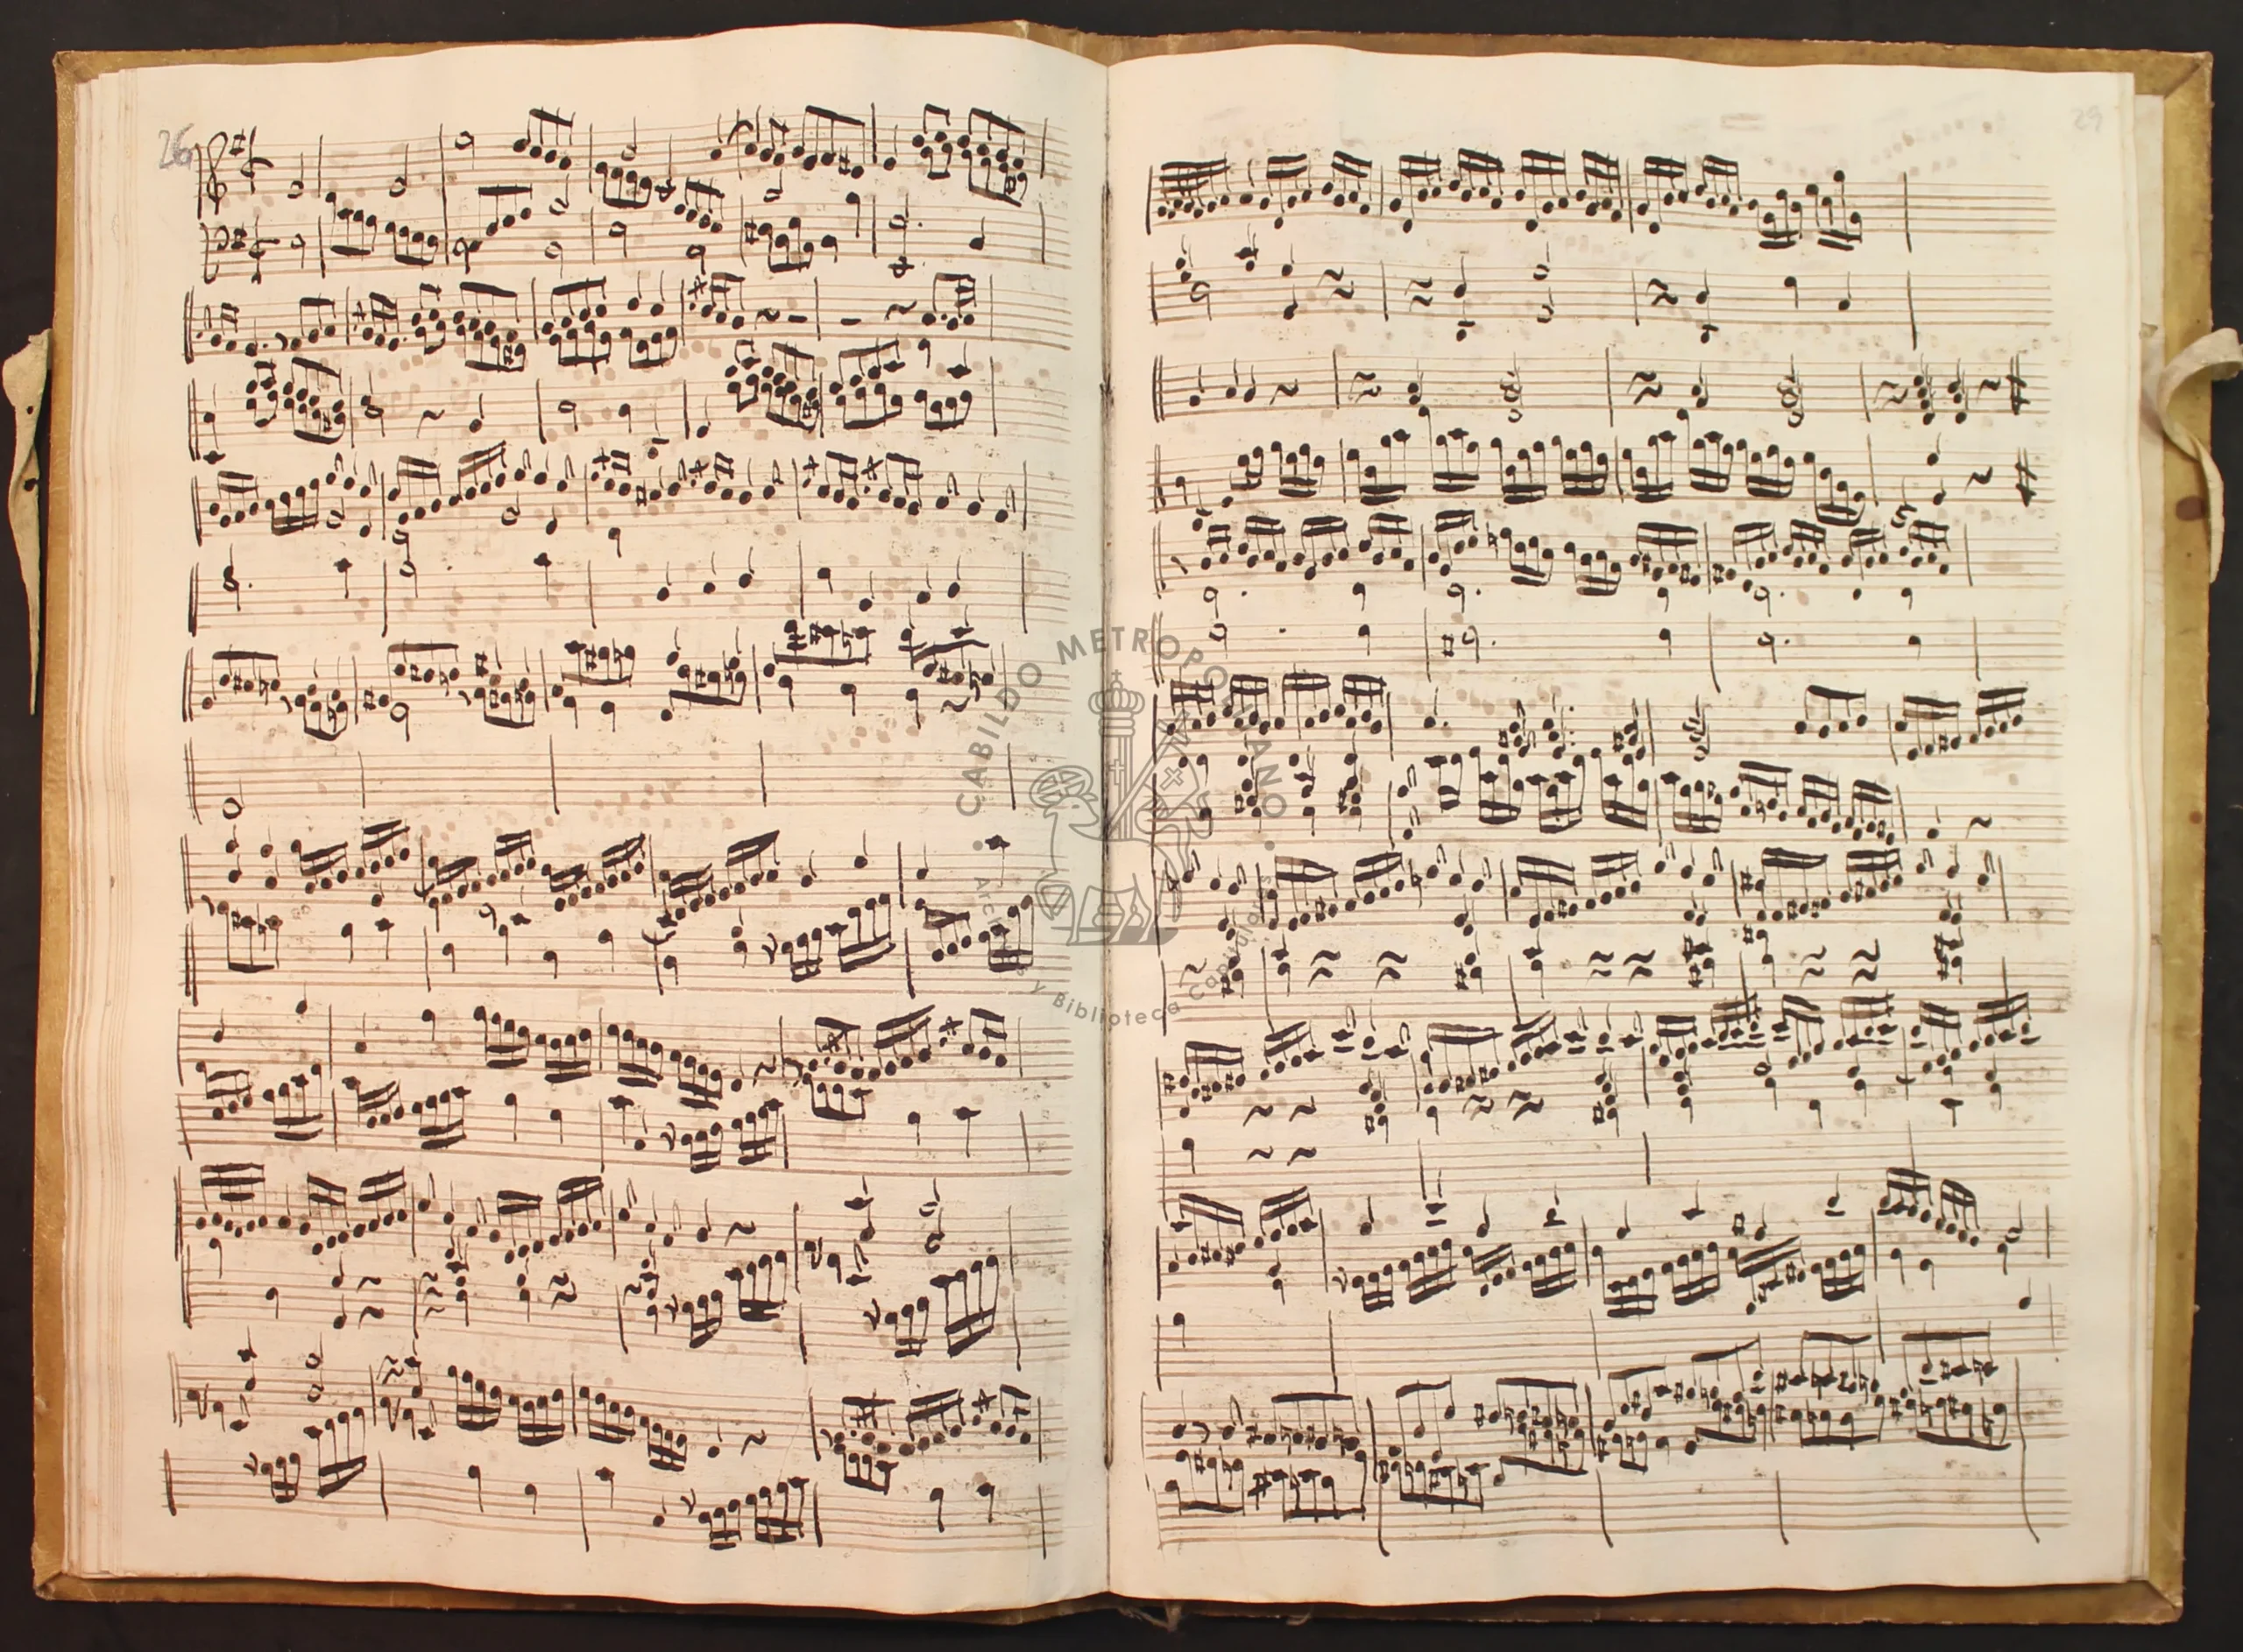 26
29
CABILDO METROPOLITANO
Archivo y Biblioteca Capitulares